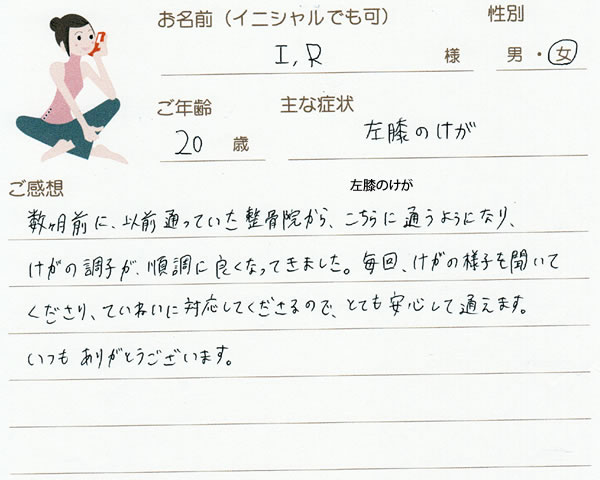 お名前（イニシャルでも可）　性別
I,R 様　男・女
ご年齢　主な症状
20 歳　左膝のけが
ご感想　左膝のけが
数ヶ月前に、以前通っていた整骨院から、こちらに通うようになり、
けがの調子が、順調に良くなってきました。毎回、けがの様子を聞いて
くださり、ていねいに対応してくださるので、とても安心して通えます。
いつもありがとうございます。